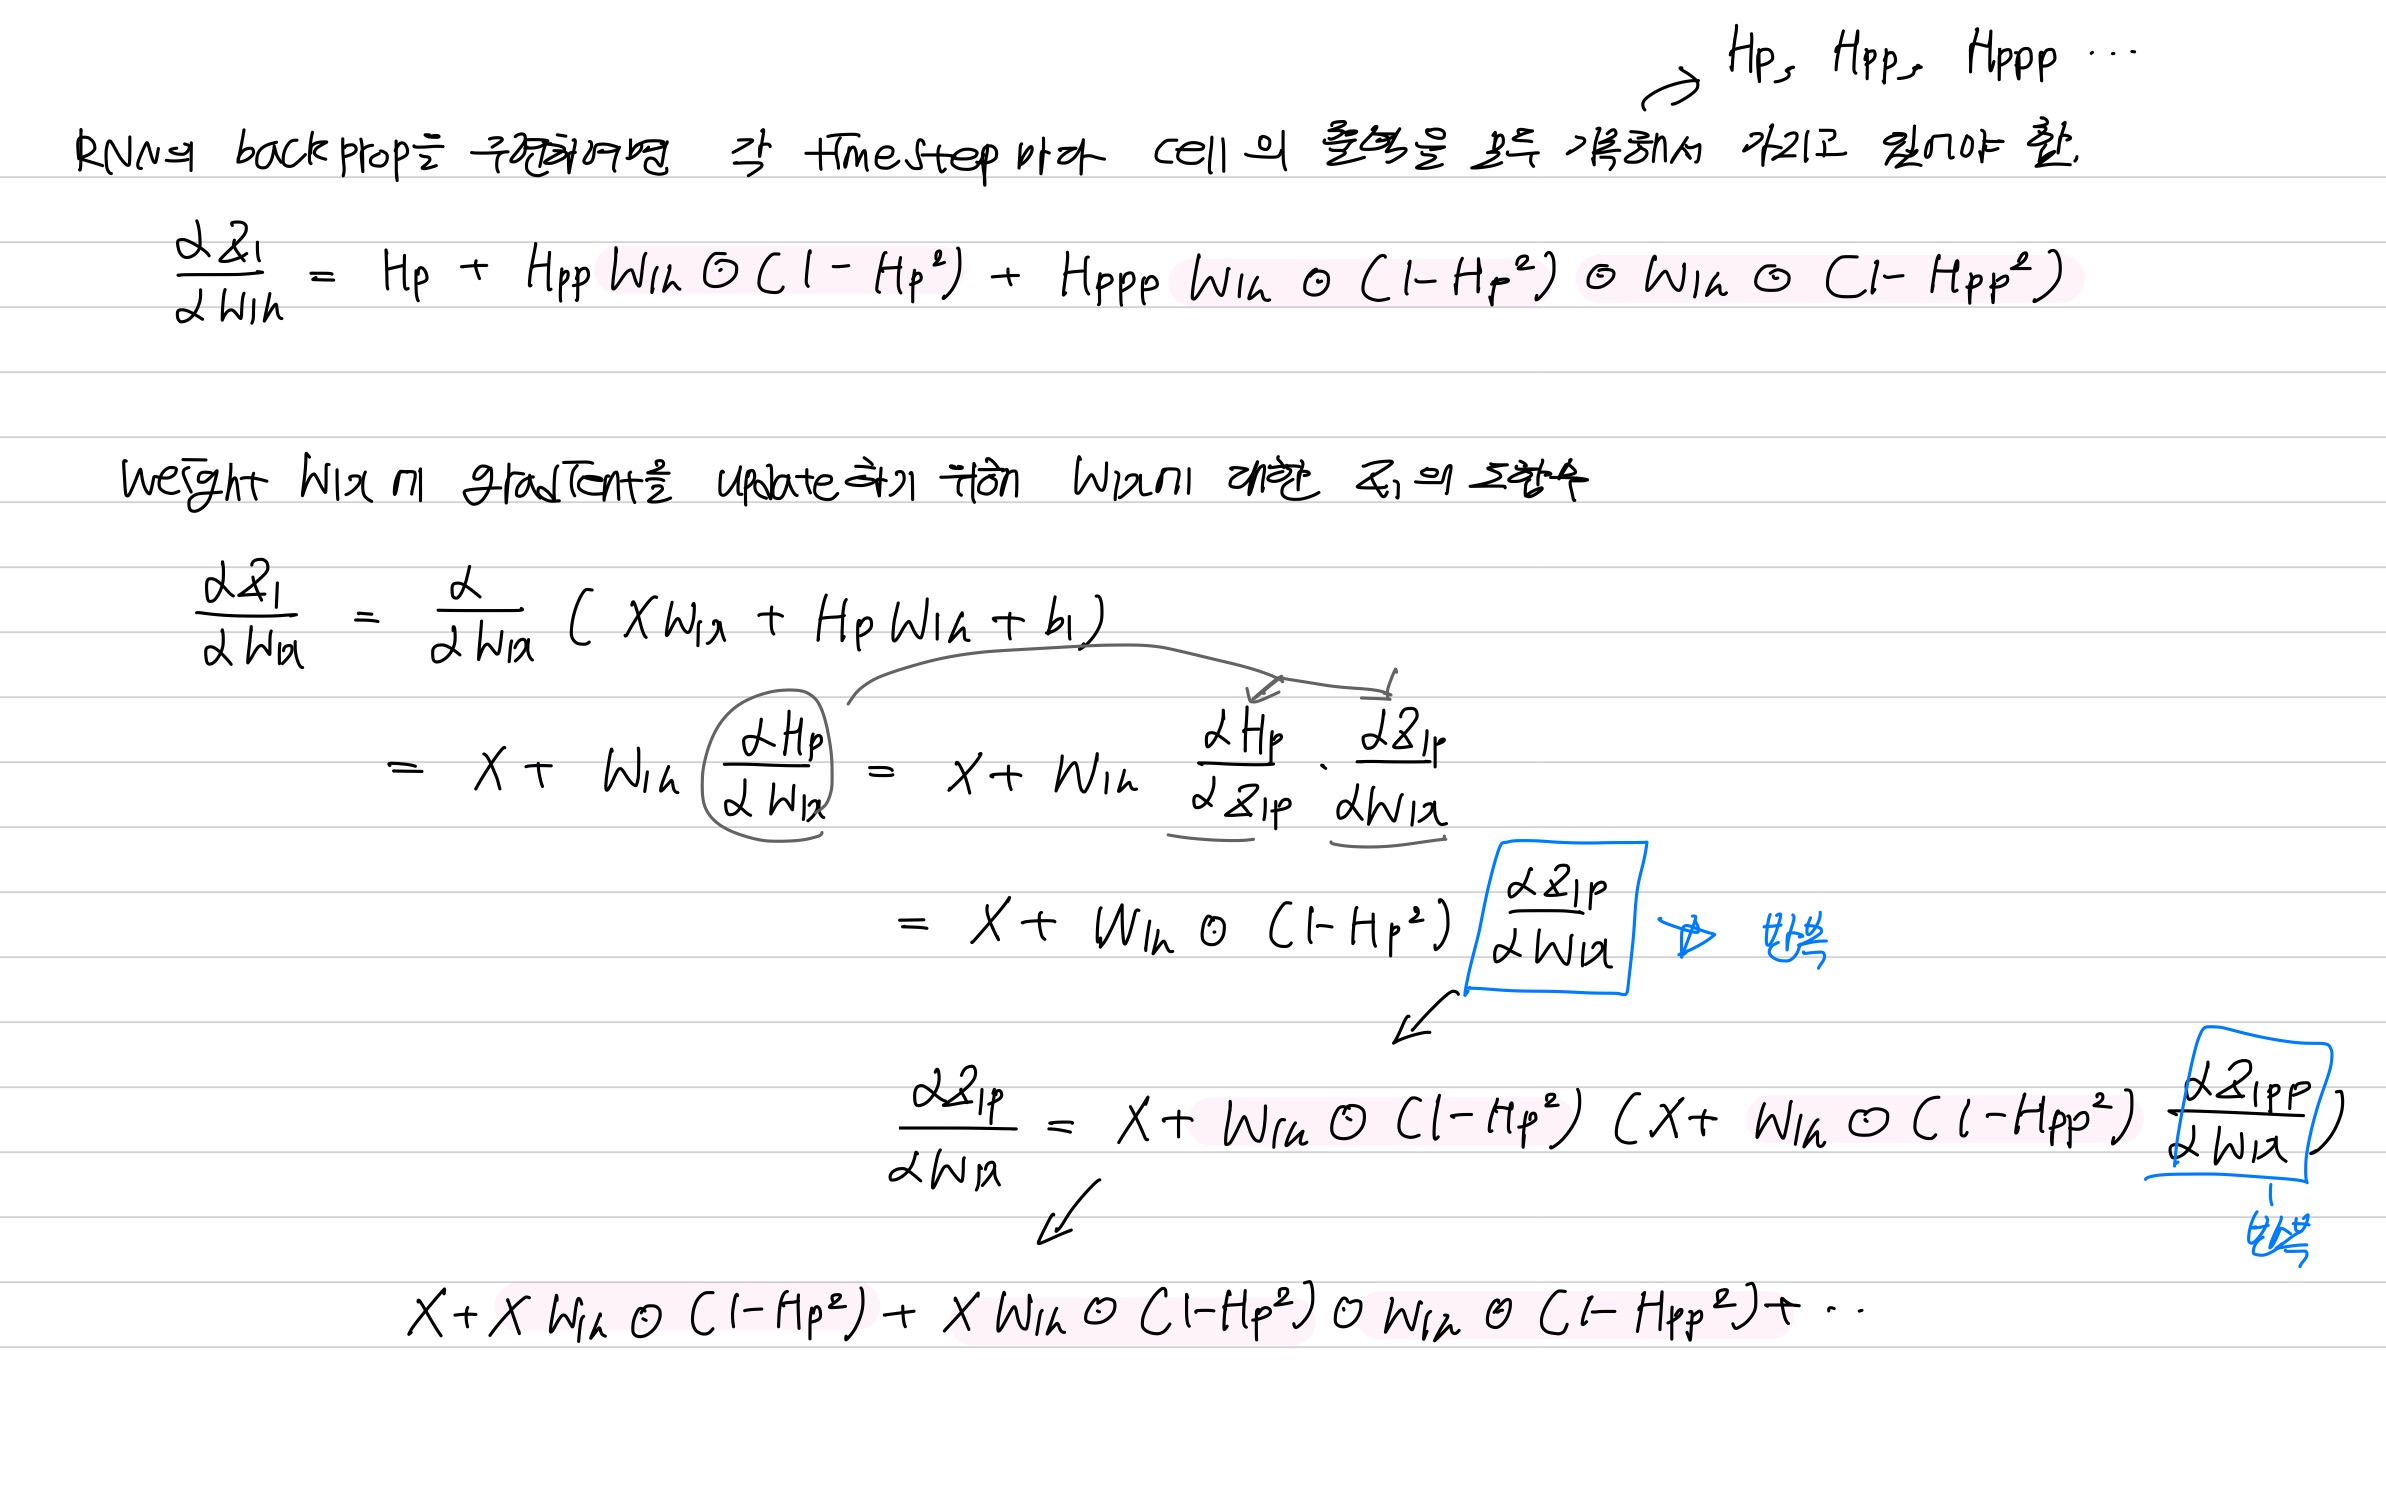 Hp, Hpp, Hppp ...
RNN의 backprop을 구현하려면 각 timestep마다 cell의 출력을 모두 기록해서 가지고 있어야 함.
∂Z₁/∂W₁ₕ = Hp + Hpp W₁ₕ ⊙ (1 - Hp²) + Hppp W₁ₕ ⊙ (1 - Hp²) ⊙ W₁ₕ ⊙ (1 - Hpp²)
weight W₁ₓ에 gradient를 update하기 위한 W₁ₓ에 대한 Z₁의 도함수
∂Z₁/∂W₁ₓ = ∂/∂W₁ₓ (XW₁ₓ + HpW₁ₕ + b₁)
= X + W₁ₕ ∂Hp/∂W₁ₓ = X + W₁ₕ ∂Hp/∂Z₁p · ∂Z₁p/∂W₁ₓ
= X + W₁ₕ ⊙ (1 - Hp²) ∂Z₁p/∂W₁ₓ → 반복
∂Z₁p/∂W₁ₓ = X + W₁ₕ ⊙ (1 - Hp²) (X + W₁ₕ ⊙ (1 - Hpp²) ∂Z₁pp/∂W₁ₓ)
반복
X + X W₁ₕ ⊙ (1 - Hp²) + X W₁ₕ ⊙ (1 - Hp²) ⊙ W₁ₕ ⊙ (1 - Hpp²) + ...